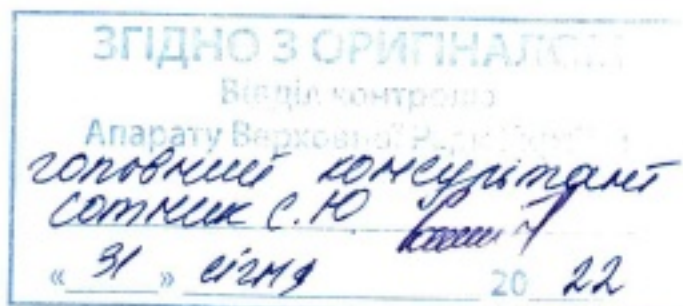 ЗГІДНО З ОРИГІНАЛОМ
Відділ контролю
Апарату Верховної Ради України
головний консультант
Сотник С.Ю
« 31 » січня 20 22